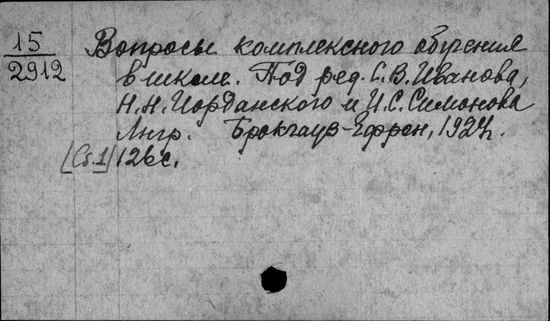 15
2912
Вопросы комплексного обучения
в школе. Под ред. С.В. Иванова,
Н.Н. Иорданского и И.С. Симонова
Лнгр. Брокгауз-Ефрон, 1924г.
[Сб.1] 126с.